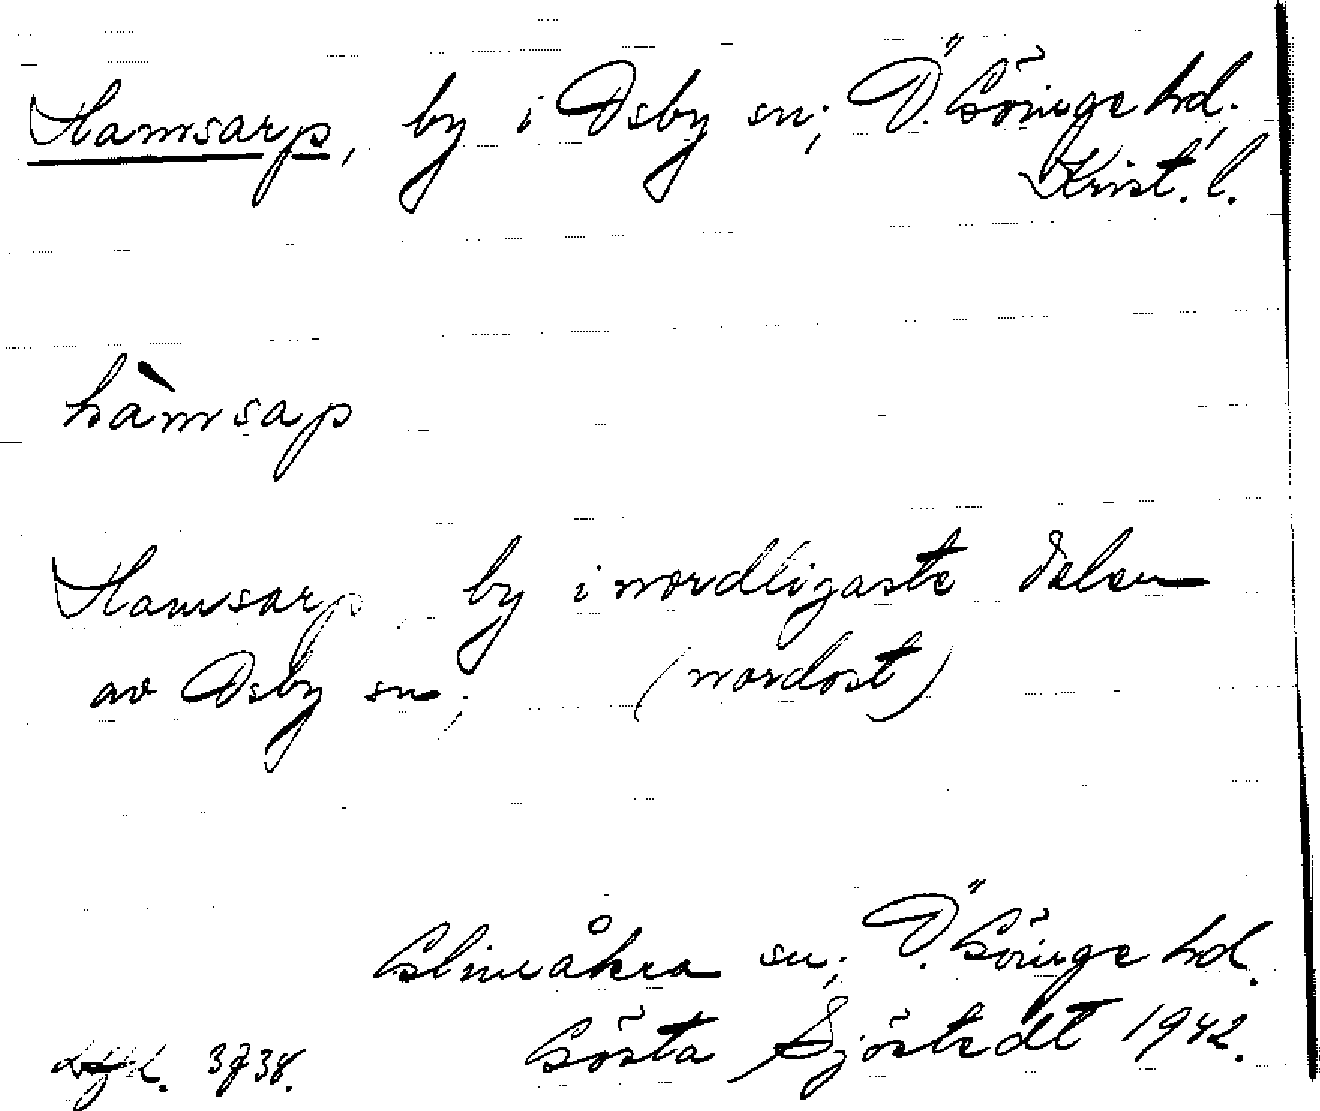 Hamsarp, by i Osby sn; Ö. Göinge hd.,
Krist. l.
hàmsap
Hamsarp by i nordligaste delen
av Osby sn; (nordost)
Glimåkra sn; Ö. Göinge hd.
Gösta Sjöstedt 1942.